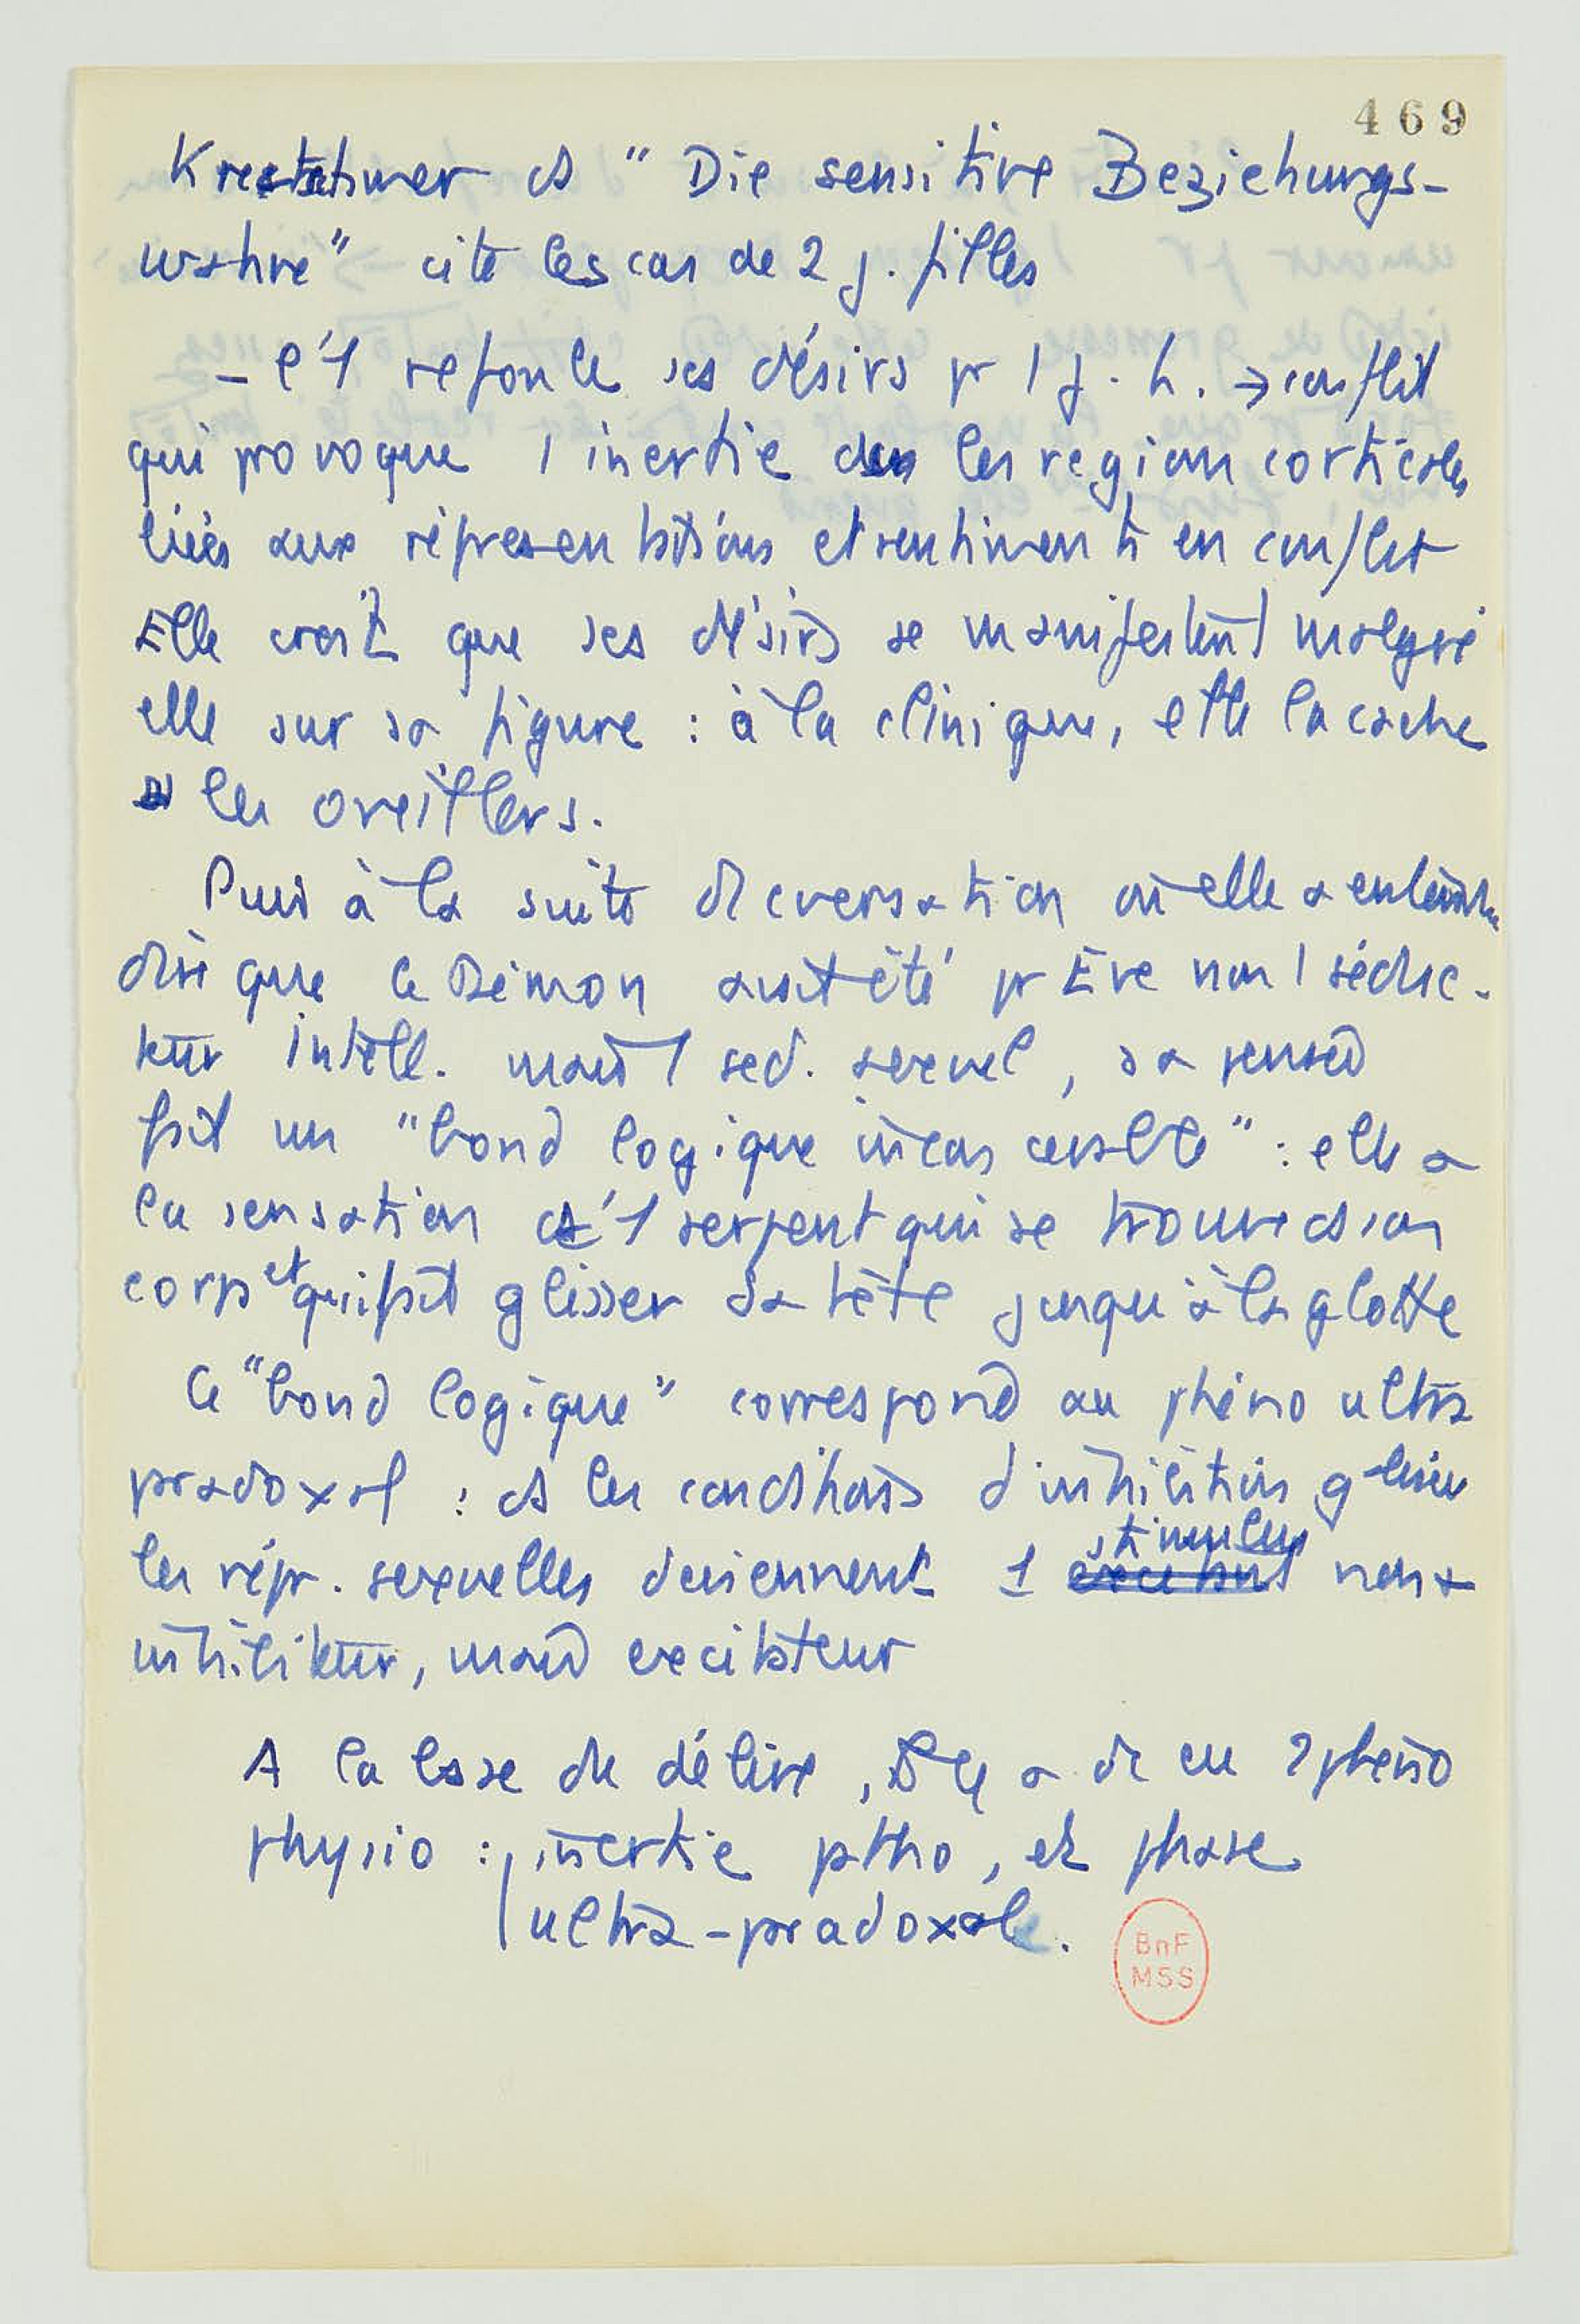 469
Kretschmer ds " Die sensitive Beziehungs-
wahne" cite les cas de 2 j. filles
- l'1 refoule ses désirs pr 1 j. h. → conflit
qui provoque 1 inertie dans les region corticales
liées aux représentations et sentiments en conflit
Elle croit que ses désirs se manifestent malgré
elle sur sa figure : à la clinique, elle la cache
ds les oreillers.
Puis à la suite de cversation où elle a entendu
dire que le Démon avait été pr Eve non 1 séduc-
teur intell. mais 1 sed. sexuel, sa pensée
fait un "bond logique inconcevable" : elle a
la sensation d'1 serpent qui se trouve ds son
corps et qui fait glisser sa tête jusqu'à la glotte
Ce "bond logique" correspond au phéno ultra
pradoxal : ds les conditions d'inhibition
les répr. sexuelles deviennent 1 excitant stimulus non
inhibiteur, mais excitateur
A la base du délire, a dc eu 2 phéno
physio : inertie patho, et phase
ultra-pradoxale.
BnF
MSS